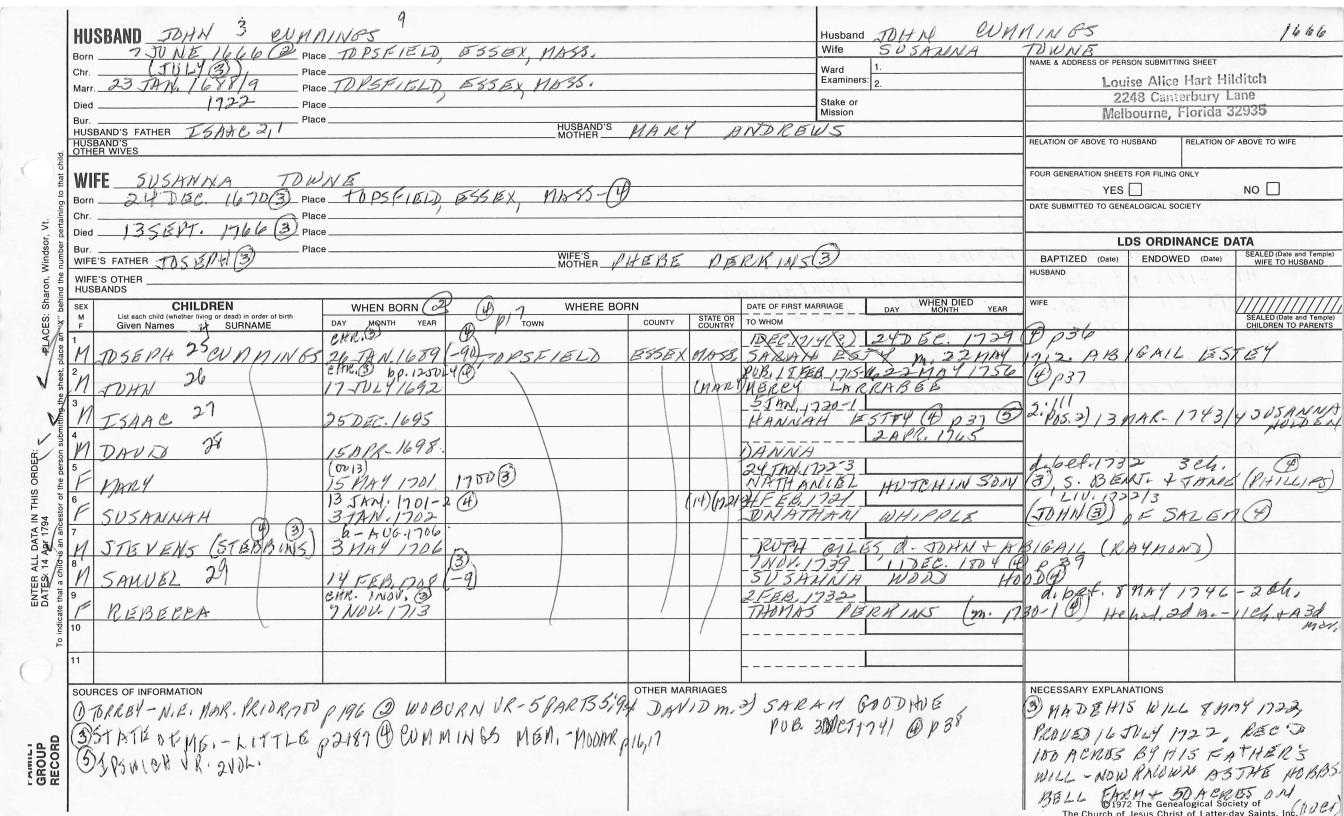 HUSBAND JOHN 3 CUMMINGS 9
Born 7 JUNE 1666 (2) Place TOPSFIELD, ESSEX, MASS.
Chr. (JULY (3)) Place
Marr. 23 JAN. 1688/9 Place TOPSFIELD, ESSEX, MASS.
Died 1722 Place
Bur. Place
HUSBAND'S FATHER ISAAC 2,1 HUSBAND'S MOTHER MARY ANDREWS
HUSBAND'S OTHER WIVES
WIFE SUSANNA TOWNE
Born 24 DEC. 1670 (3) Place TOPSFIELD, ESSEX, MASS- (4)
Chr. Place
Died 13 SEPT. 1766 (3) Place
Bur. Place
WIFE'S FATHER JOSEPH (3) WIFE'S MOTHER PHEBE PERKINS (3)
WIFE'S OTHER HUSBANDS
Husband JOHN CUMMINGS 1666
Wife SUSANNA TOWNE
Ward Examiners: 1.
2.
Stake or Mission
NAME & ADDRESS OF PERSON SUBMITTING SHEET
Louise Alice Hart Hilditch
2248 Canterbury Lane
Melbourne, Florida 32935
RELATION OF ABOVE TO HUSBAND RELATION OF ABOVE TO WIFE
FOUR GENERATION SHEETS FOR FILING ONLY
YES NO
DATE SUBMITTED TO GENEALOGICAL SOCIETY
LDS ORDINANCE DATA
BAPTIZED (Date) ENDOWED (Date) SEALED (Date and Temple) WIFE TO HUSBAND
HUSBAND
WIFE
SEALED (Date and Temple) CHILDREN TO PARENTS
SEX M F
CHILDREN
List each child (whether living or dead) in order of birth
Given Names 4 SURNAME
WHEN BORN (2)
DAY MONTH YEAR
(4) p17
WHERE BORN
TOWN COUNTY STATE OR COUNTRY
DATE OF FIRST MARRIAGE
TO WHOM
WHEN DIED
DAY MONTH YEAR
CHR. (3) (4) 24 DEC. 1729 (4) p36
1 M JOSEPH 25 CUMMINGS 26 JAN. 1689 (-90) TOPSFIELD ESSEX MASS. SARAH ESTY m. 22 MAY 1712. ABIGAIL ESTEY
CHR. (3) bp. 12 JULY (4) PUB. 18 FEB. 1715 22 MAY 1756 (4) p37
2 M JOHN 26 17 JULY 1692 (MAR) MERCY LARRABEE
5 JAN. 1720-1
3 M ISAAC 27 25 DEC. 1695 HANNAH ESTEY (4) p37 (5) 13 MAR- 1743/4 SUSANNA HOLDEN
2 APR. 1765
4 M DAVID 28 15 APR- 1698. DANNA
(OR 13) 24 JAN. 1722-3 d. bef. 1732 3 ch. (4)
5 F MARY 15 MAY 1701 1700 (3) NATHANIEL HUTCHINSON (3), S. BENJ. & JANE (PHILLIPS)
13 JAN. 1701-2 (4) FEB. 1721 LIV. 1722/3
6 F SUSANNAH 3 JAN. 1702 JONATHAN WHIPPLE (JOHN (3)) OF SALEM (4)
(4) (3) 6-AUG. 1706
7 M STEVENS (STEBBINS) 3 MAY 1706 RUTH GILES, d- JOHN & ABIGAIL (RAYMOND)
(3) 1 NOV. 1739 11 DEC. 1804 (4) p 39
8 M SAMUEL 29 14 FEB. 1708 (-9) SUSANNA WOOD HOOD (4)
CHR. 1 NOV. (3) 2 FEB. 1732 d. bef. 8 MAY 1746 - 2 ch.
9 F REBECCA 7 NOV. 1713 THOMAS PERKINS (m. 1730-1 (4)) He had 2d m. - 11 ch & A 3d mar.
10
11
SOURCES OF INFORMATION
(1) TORREY - N.E. MAR. PRIOR 1700 p196 (2) WOBURN VR - 5 PARTS 5:94
(3) STATE OF ME. - LITTLE p2187 (4) CUMMINGS MEM. - MOOAR p16,17
(5) IPSWICH VR. 2 VOL.
OTHER MARRIAGES
DAVID m. 2) SARAH GOODHUE
PUB. 3 OCT 1741 (4) p38
NECESSARY EXPLANATIONS
(3) MADE HIS WILL 8 MAY 1722,
PROVED 16 JULY 1722, REC'D
100 ACRES BY HIS FATHER'S
WILL - NOW KNOWN AS THE HOBBS-
BELL FARM & 50 ACRES ON
(OVER)
©1972 The Genealogical Society of
The Church of Jesus Christ of Latter-day Saints, Inc.
FAMILY GROUP RECORD
ENTER ALL DATA IN THIS ORDER:
DATES: 14 Apr 1794
PLACES: Sharon, Windsor, Vt.
To indicate that a child is an ancestor of the person submitting the sheet, place an "X" behind the number pertaining to that child.